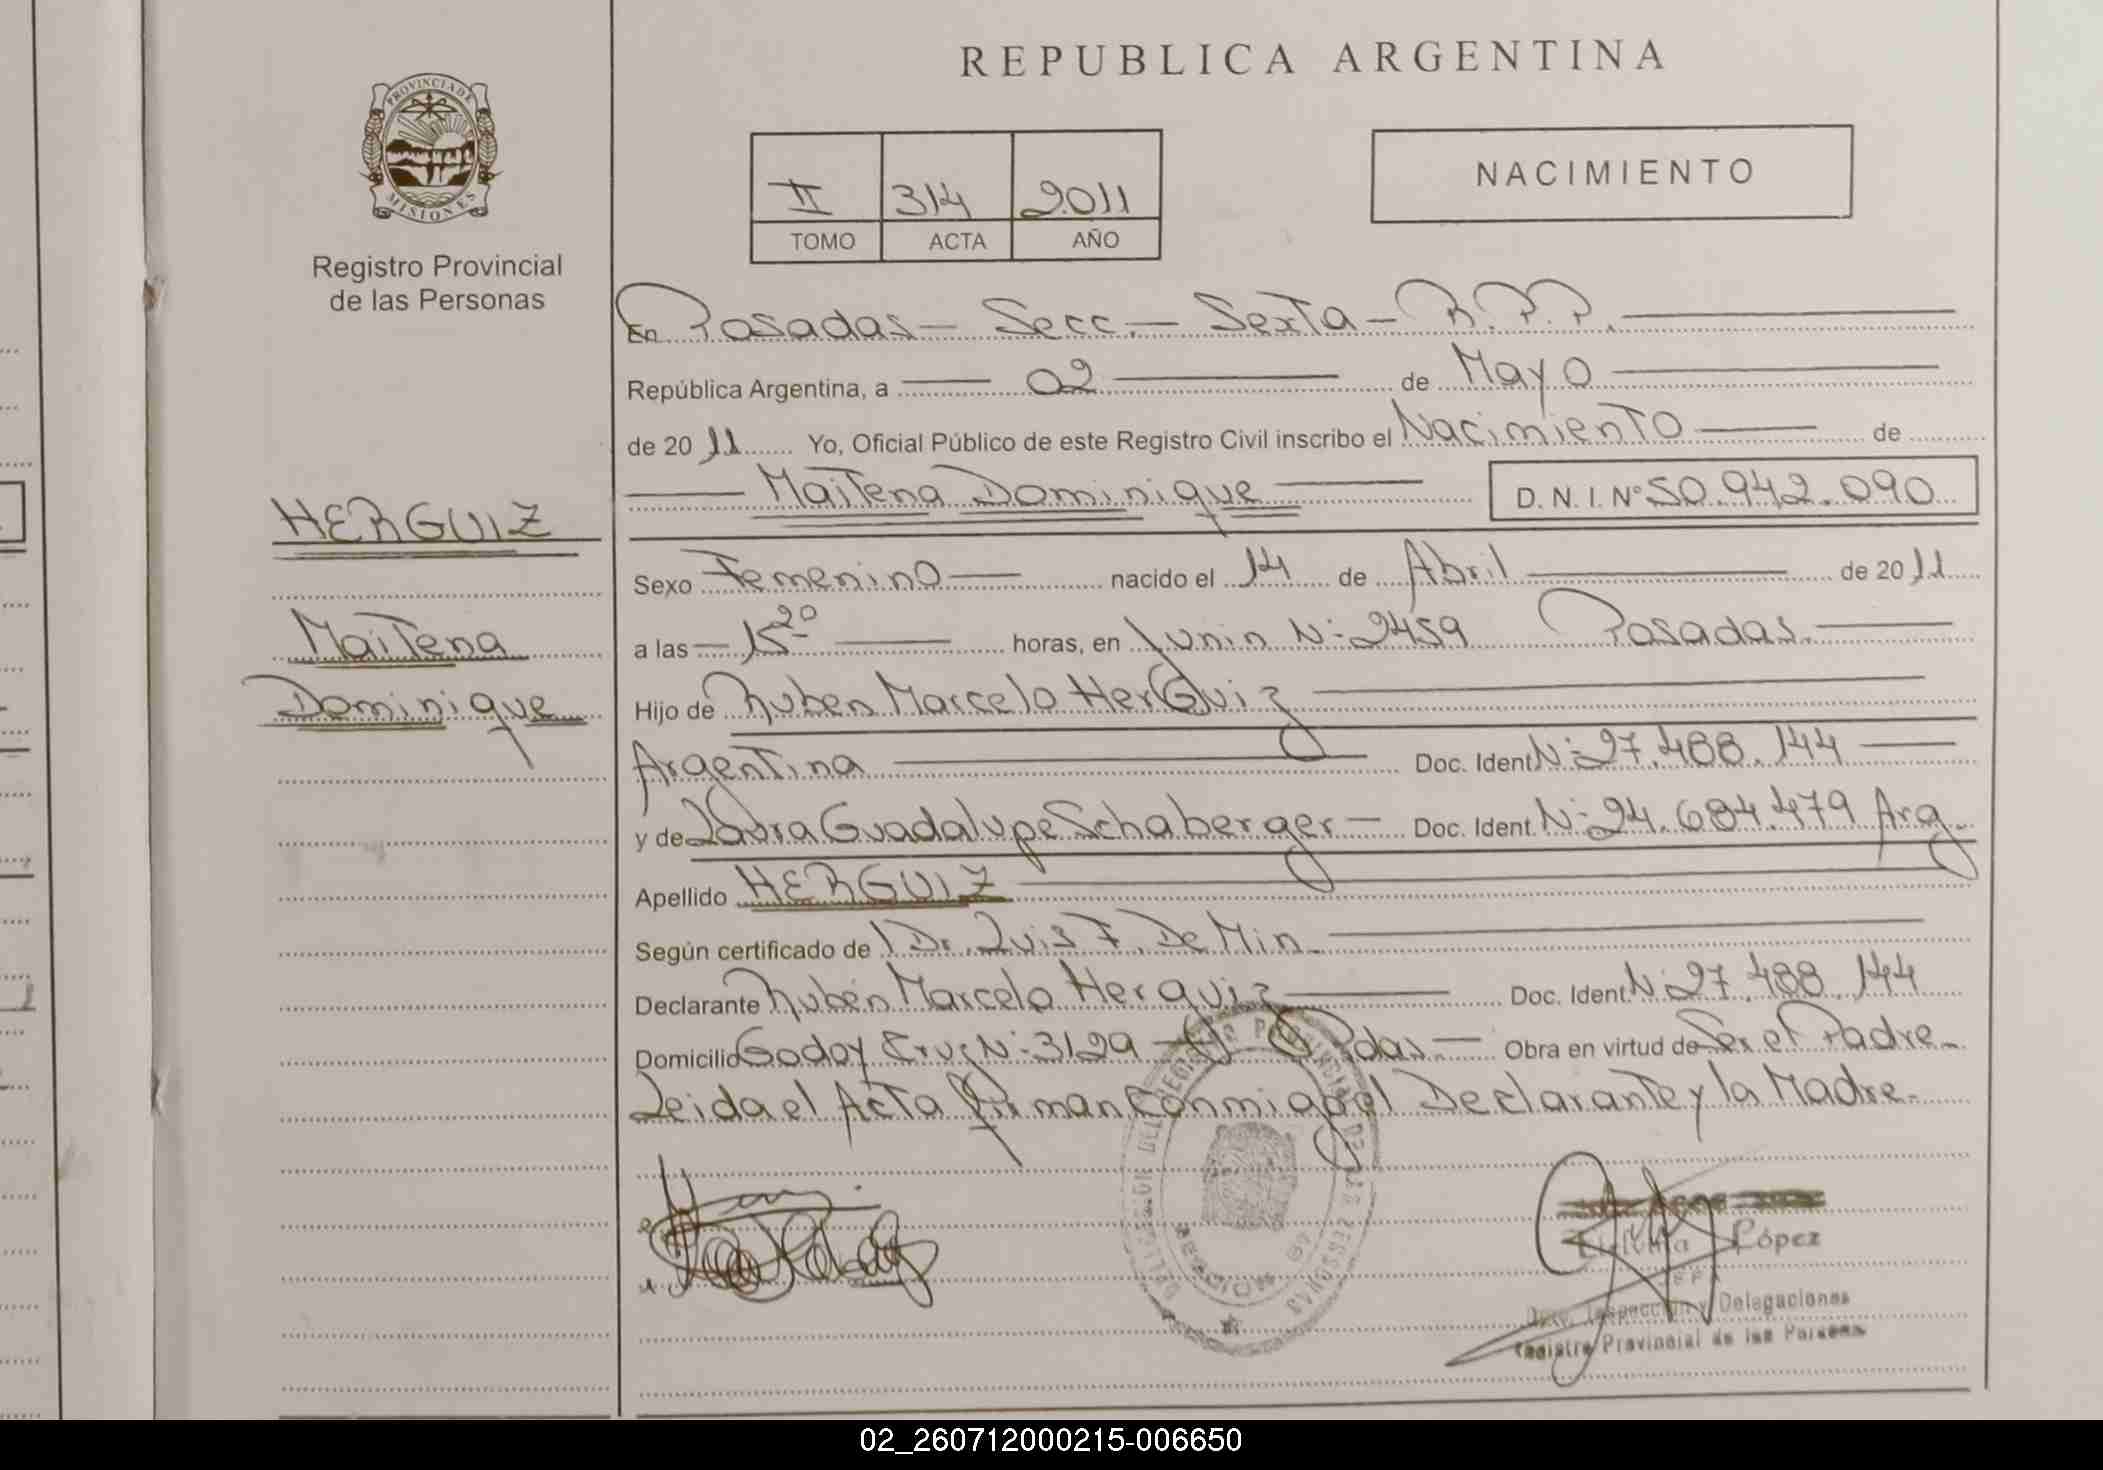 REPUBLICA ARGENTINA
PROVINCIA DE
MISIONES
Registro Provincial
de las Personas
II 314 2011
TOMO ACTA AÑO
NACIMIENTO
HERGUIZ
Maitena
Dominique
En Posadas - Secc. - Sexta - R.P.P.
República Argentina, a 02 de Mayo
de 2011 Yo, Oficial Público de este Registro Civil inscribo el Nacimiento de
Maitena Dominique D.N.I. Nº 50.942.090
Sexo Femenino nacido el 14 de Abril de 2011
a las 15 20 horas, en Junin Nº 2459 Posadas.
Hijo de Ruben Marcelo HerGuiz
Argentina Doc. Ident. Nº 27.488.144
y de Laura Guadalupe Schaberger - Doc. Ident. Nº 24.684.479 Arg.
Apellido HERGUIZ
Según certificado de Dr. Luis F. De Min.
Declarante Rubén Marcelo Herguiz Doc. Ident. Nº 27.488.144
Domicilio Godoy Cruz Nº 3129 - Pdas. - Obra en virtud de Ser el Padre.
Leida el Acta Firman Conmigo el Declarante y la Madre.
López
JEFA
Dpto. Inspección y Delegaciones
Registro Provincial de las Personas
02_260712000215-006650